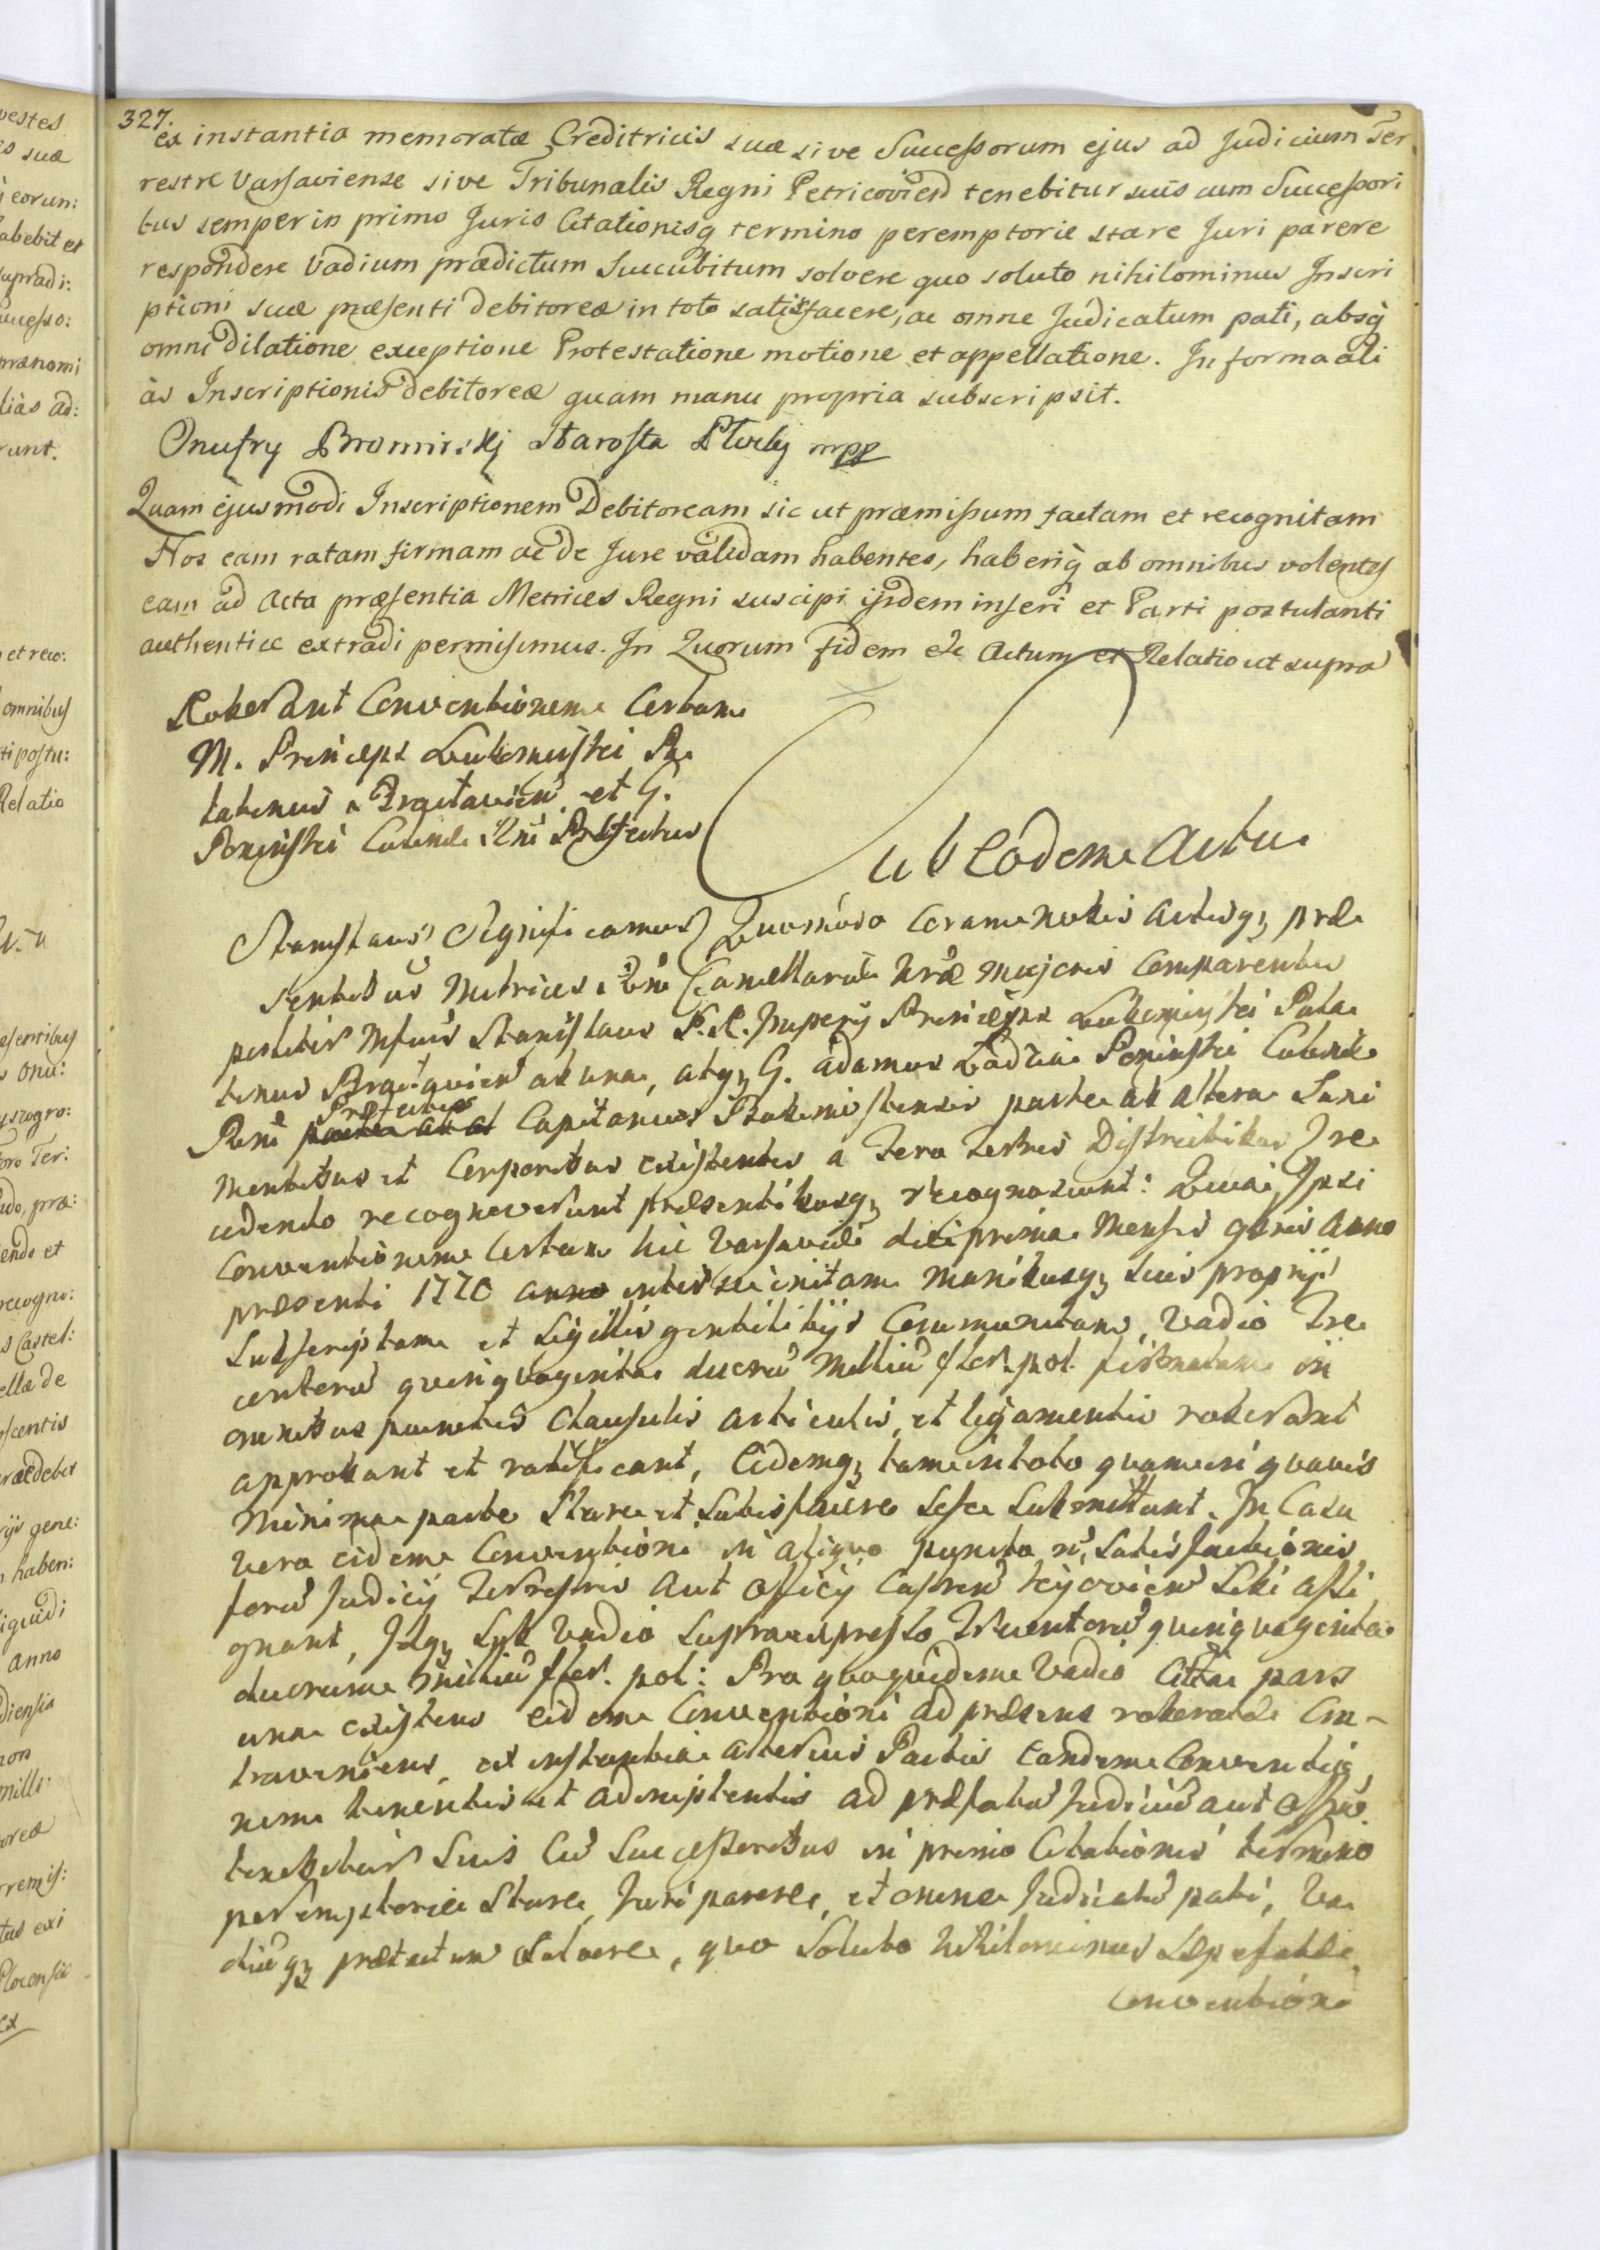 327.
ex instantia memoratæ Creditricis suæ sive Successorum ejus ad Judicium Ter
restre Varsaviense sive Tribunalis Regni Petricovien tenebitur suis cum Successori
bus semper in primo Juris Citationisq termino peremptorie stare Juri parere
respondere Vadium prædictum Succubitum solvere quo soluto nihilominus Inscri
ptioni suæ præsenti debitoreæ in toto satisfacere, ac omne Judicatum pati, absq
omni dilatione exceptione Protestatione motione et appellatione. In forma ali
às Inscriptionis debitoreæ quam manu propria subscripsit.
Onufry Bromirskj Starosta Płockj mpp
Quam ejusmodi Inscriptionem Debitoream sic ut præmissum factam et recognitam
Nos eam ratam firmam ac de Jure validam habentes, haberiq ab omnibus volentes
eam ad Acta præsentia Metrices Regni suscipi ijsdem inseri et Parti postulanti
authentice extradi permisimus. In Quorum fidem etc Actum et Relatio ut supra
Roborant Conventionem Certam
M. Princeps Lubomirski Pa
latinus Braclavien et G.
Poninski Culinæ Rni Præfectus
Sub Eodem Actu
Stanislaus Significamus Quomodo Coram Nobis Actisq præ
sentibus Metrices Rni Cancellariæ Nræ Majoris Comparentes
personaliter Mfcus Stanislaus S. R. Imperij Princeps Lubomirski Pala
tinus Braclavien ab una, atq G. Adamus Łodzia Poninski Culinæ
Regni Præfectus Capitaneus parte ab altera Sani
Mentibus et Corporibus existentes a Foro Terris Districtibus Ire
cedendo recognoverunt præsentibusq recognoscunt: Quia Ipsi
Conventionem Certam hic Varsaviæ die prima Mensis 9bris Anno
præsenti 1770 inter se initam Manibusq suis proprijs
Subscriptam et Sigillis gentilitijs Communitam, Vadio Tre
centorū quinquaginta duorū Milliū flor. pol. firmatam in
omnibus punctis Clausulis articulis, et ligamentis roborant
approbant et ratificant, Eidemq tam in toto quam in quavis
Minima parte Stare et Satisfacere sese Submittunt. In Casu
vero eidem Conventioni in aliquo puncto nō Satisfactionis
forū Judicij Terrestris Aut Officij Castren Kijovien Sibi assi
gnant, Idq Sub Vadio Supraexpresso Trecentorū quinquaginta
duorum Milliū flor. pol: Pro quoquidem Vadio Citta pars
una existens eidem Conventioni ad præsens roboratæ Con-
traveniens, ad instantiam alterius Partis eandem Conventio
nem tenentis et adimplentis ad præfatū Judiciū aut Offiū
tenebitur Suis Cū Successoribus in primo Citationis termino
peremptorie Stare, Juri parere, et omne Judicatū pati, Va
diūq prætactum Solvere, quo Soluto Nihilominus Sæpefatæ
Conventioni